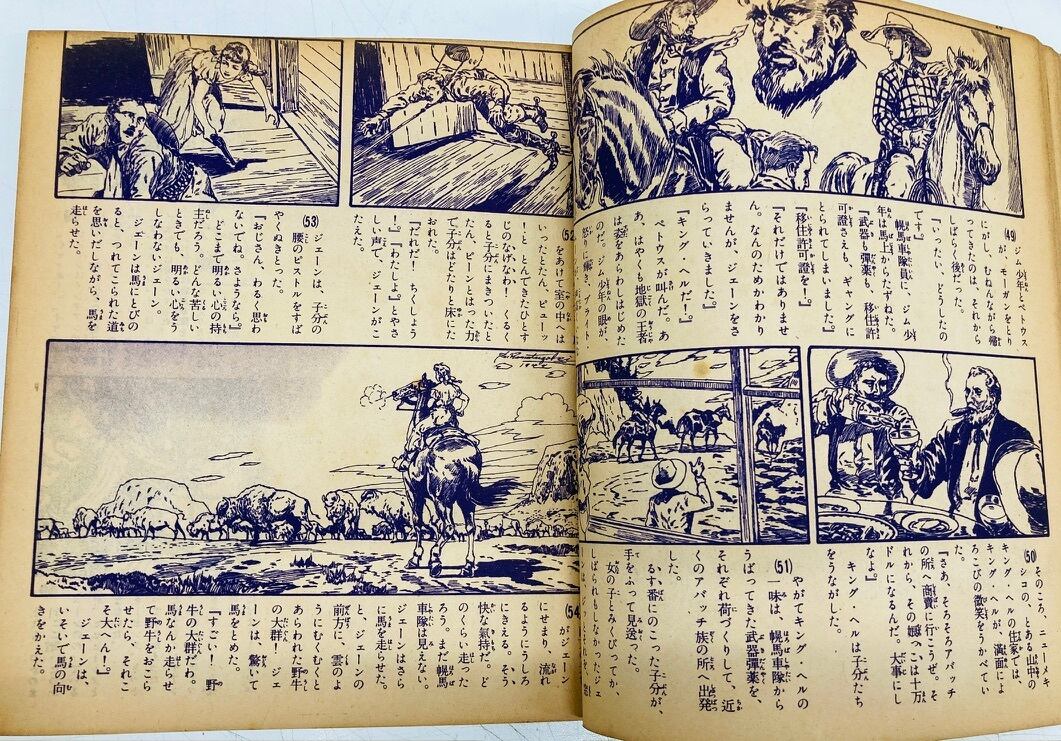 (49)
ジム少年とペトウス
が、モーガンをとり
にがし、むねんながら帰
ったのは、それから
しばらく後だった。
『いったい、どうしたの
です』
幌馬車隊員に、ジム少
年は馬上からたずねた。
『武器も弾薬も、移住許
可證さえも、ギャングに
とられてしまいました』
『移住許可證を！』
『それだけではありませ
ん。なんのためかわかり
ませんが、ジェーンをさ
らっていきました』
『キング、ヘルだ！』
ペトウスがさけんだ。あ
あ、はやくも地獄の王者
は姿をあらわしはじめた
のだ。ジム少年の眼が、
怒りに輝き、ブライト
(50)
そのころ、ニューメキ
シコの、とある山中の
キング、ヘルの住家では、
キング、ヘルが、満面によ
ろこびの微笑をうかべてい
た。
『さあ、そろそろアパッチ
の所へ商賣に行こうぜ。そ
れから、その娘っこは十万
ドルになるんだ。大事にし
なよ』
キング、ヘルは子分たち
をうながした。
(51)
やがてキング・ヘルの
一味は、幌馬車隊から
うばってきた武器弾薬を、
それぞれ荷づくりして、近
くのアパッチ族の所へ出発
した。
るす番にのこった子分が、
手をふって見送った。
女の子とみくびってか、
しばらもしなかったジェ
(52)
をあけて室の中へは
いったとたん、ピューッ
！と、とんできたひとす
じのなげなわ！くるく
ると子分にまきついたと
たん、ピーンとはった力
で子分はどたりと床にた
おれた。
『だれだ！ちくしょう
！』『わたしよ』とやさ
しい声で、ジェーンがこ
たえた。
(53)
ジェーンは、子分の
腰のピストルをすば
やくぬきとった。
『おじさん、わるく思わ
ないでね。さようなら』
どこまで明るい心の持
主だろう。どんな苦しい
ときでも、明るい心をう
しなわないジェーン。
ジェーンは馬にとびの
ると、つれてこられた道
を思いだしながら、馬を
走らせた。
(54)
がジェーン
にせまり、流れ
るようにうしろ
にきえる。そう
快な氣持だ。ど
のくらい走った
ろう。まだ幌馬
車隊は見えない。
ジェーンはさら
に馬を走らせた。
と、ジェーンの
前方に、雲のよ
うにむくむくと
あらわれた野牛
の大群！ジェ
ーンは、驚いて
馬をとめた。
『すごい！野
牛の大群だわ。
馬なんか走らせ
て野牛をおこら
せたら、それこ
そ大へん！』
ジェーンは、
いそいで馬の向
きをかえた。